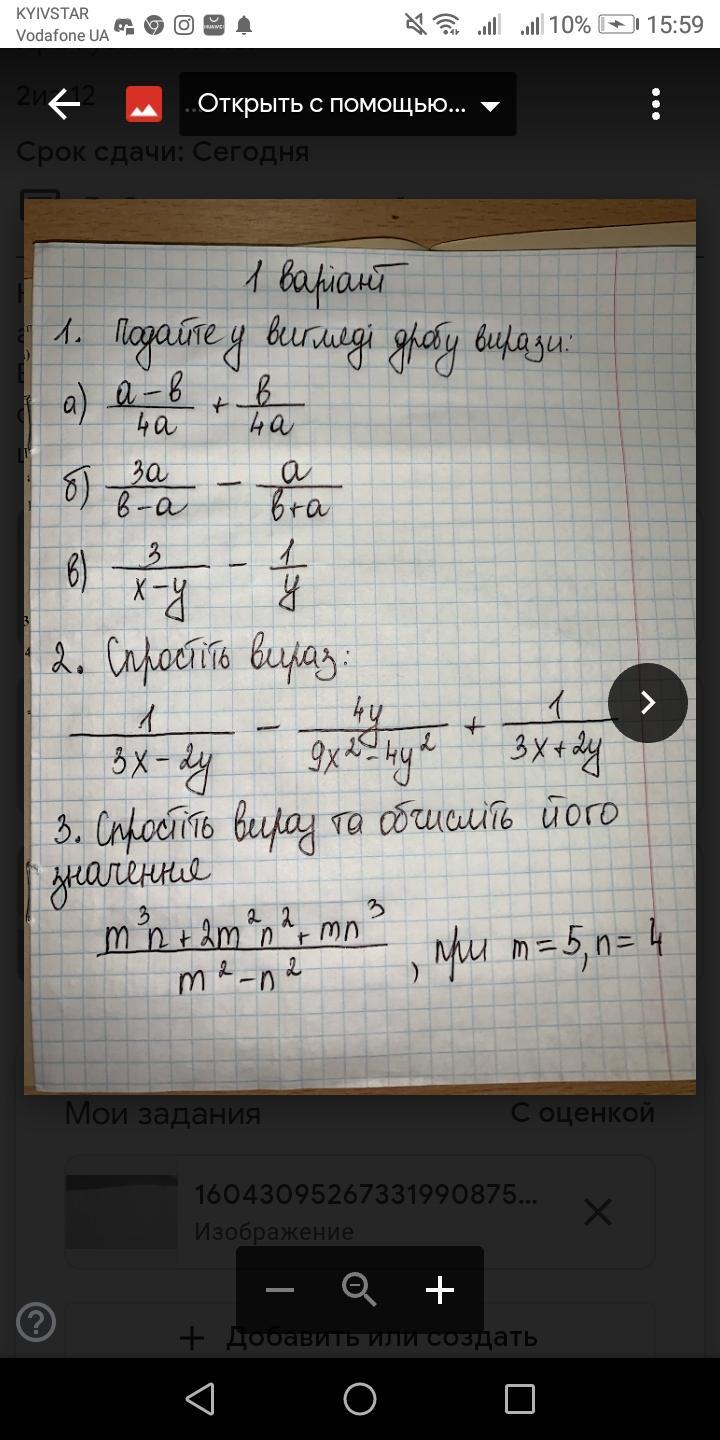 KYIVSTAR
Vodafone UA
10% 15:59
..Открыть с помощью...
Срок сдачи: Сегодня
1 варіант
1. Подайте у вигляді дробу вирази:
а) (a-b)/(4a) + b/(4a)
б) (3a)/(b-a) - a/(b+a)
в) 3/(x-y) - 1/y
2. Спростіть вираз:
1/(3x-2y) - (4y)/(9x²-4y²) + 1/(3x+2y)
3. Спростіть вираз та обчисліть його
значення
(m³n+2m²n²+mn³)/(m²-n²), при m=5, n=4
Мои задания
С оценкой
16043095267331990875...
Изображение
+ Добавить или создать